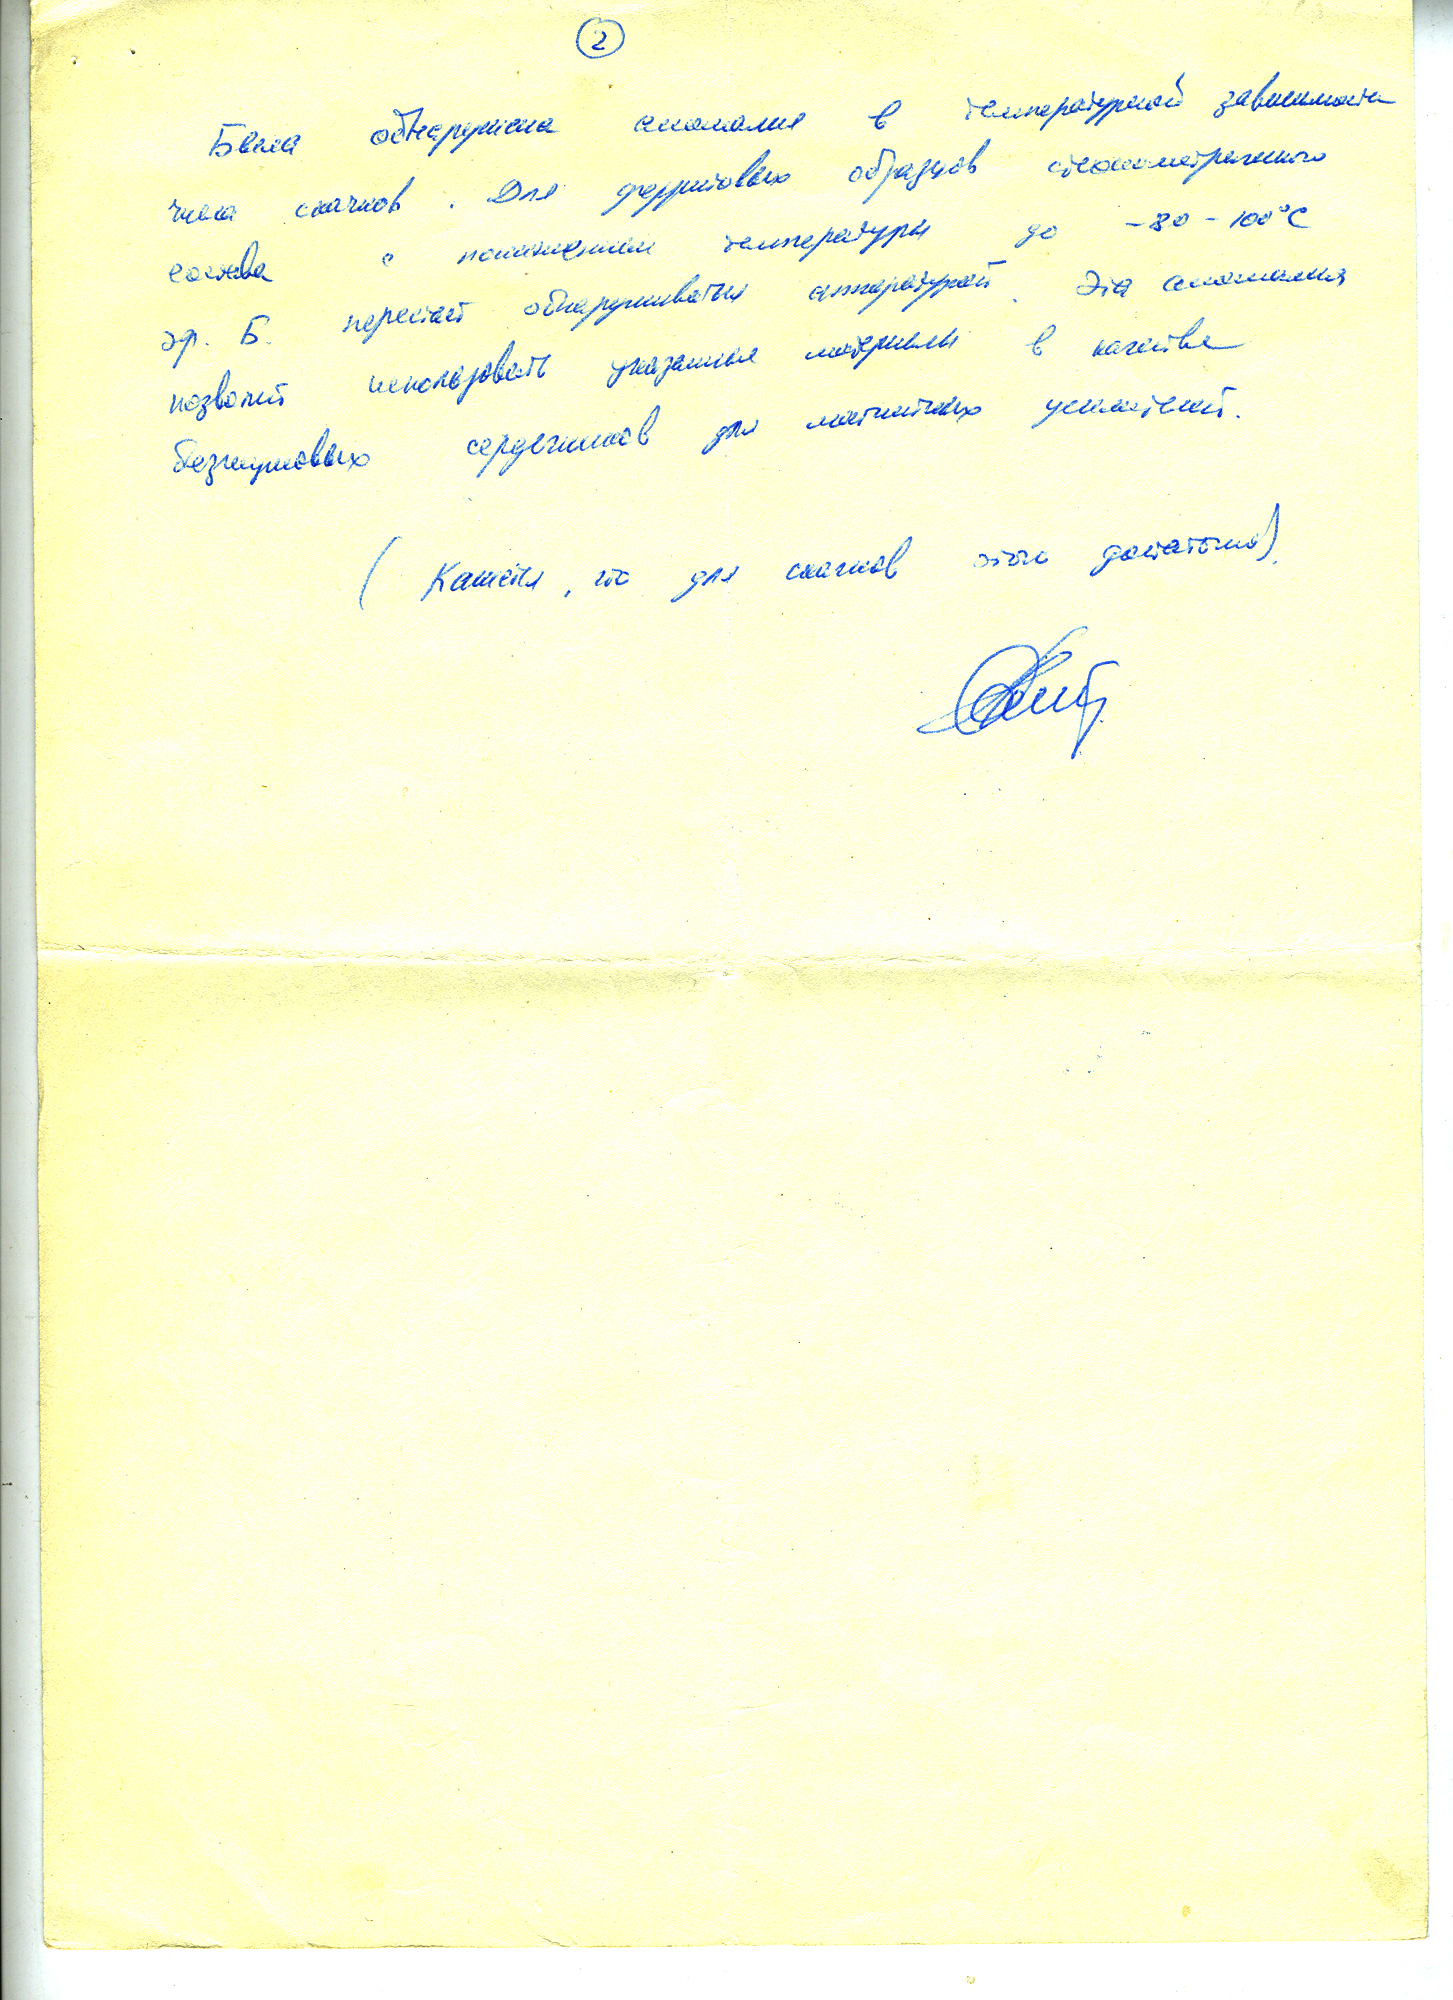 2
Была обнаружена аномалия в температурной зависимости
числа скачков. Для ферритовых образцов стехиометричного
состава с понижением температуры до -80 - 100°С
эф. Б. перестает обнаруживаться аппаратурой. Эта аномалия
позволит использовать указанные материалы в качестве
безшумовых сердечников для магнитных усилителей.
(Кажется, что для скачков этого достаточно).